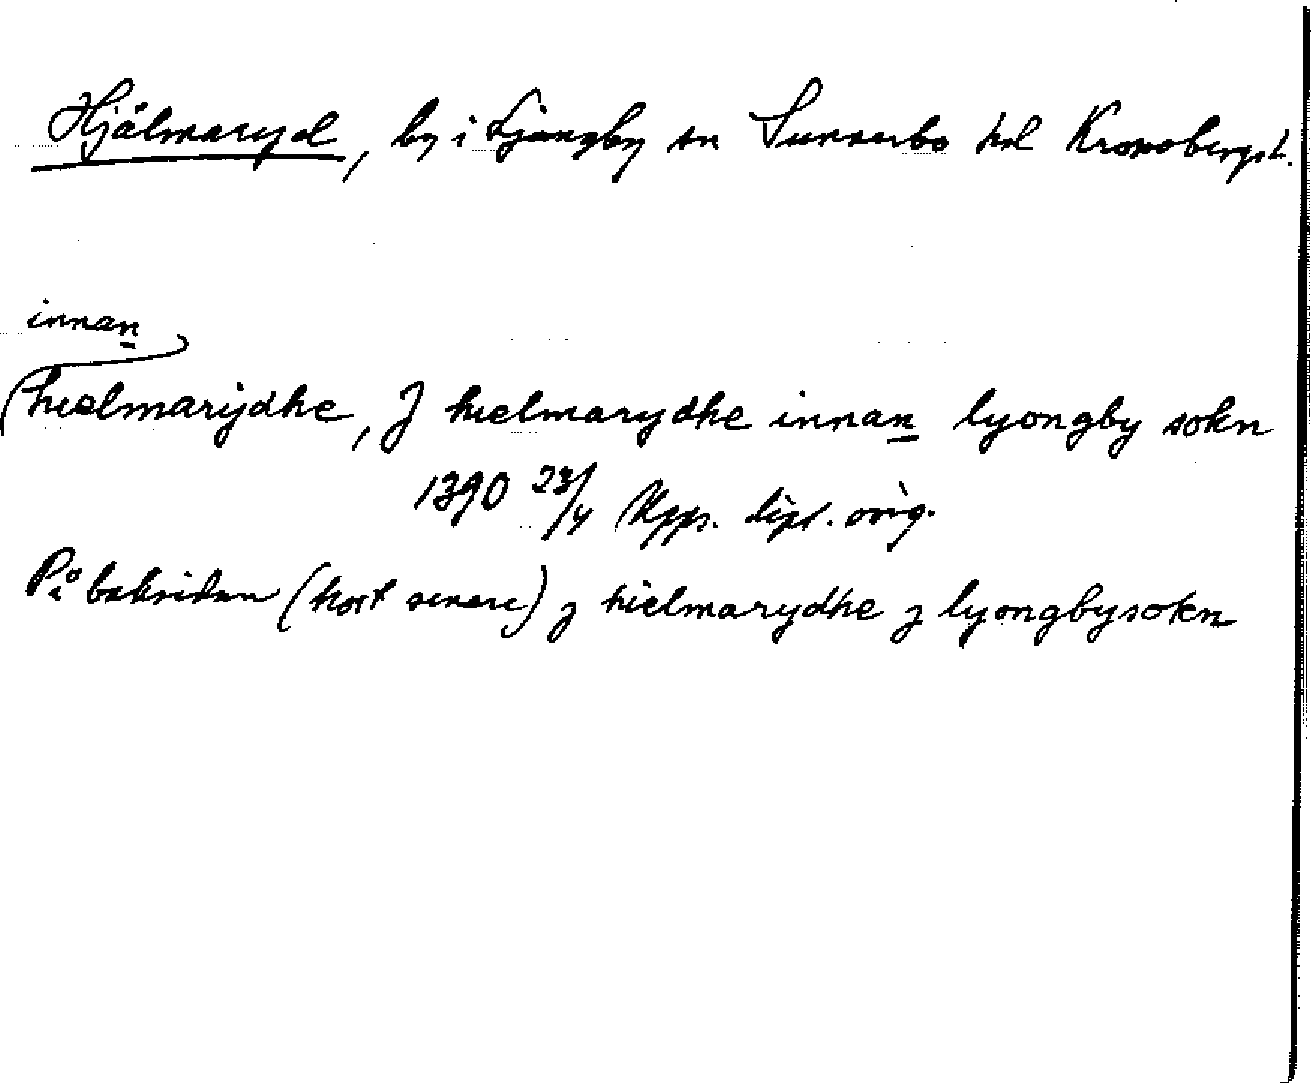 Hjälmaryd, by i Ljungby sn Sunnerbo hd Kronobergs l.
innan
hielmarijdhe, J hielmarydhe innan lyongby sokn
1390 23/4 Upps. dipl. orig.
På baksidan (host senare) j hielmarydhe j lyongbysokn